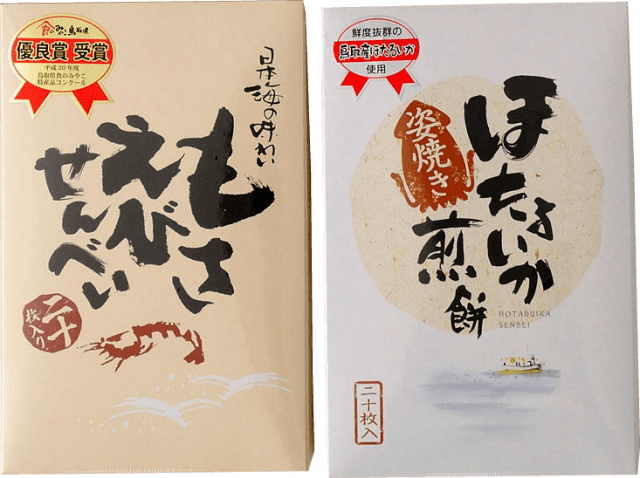 食のみやこ鳥取県
優良賞 受賞
平成30年度
鳥取県食のみやこ
特産品コンクール
日本海の味わい
もさ
えび
せんべい
二十
枚入り
鮮度抜群の
鳥取産ほたるいか
使用
ほたるいか
姿焼き
煎餅
HOTARUIKA
SENBEI
二十枚入